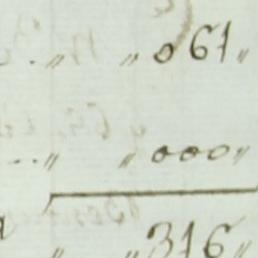 ..〃 〃061〃
...〃 〃000〃
〃 〃316〃